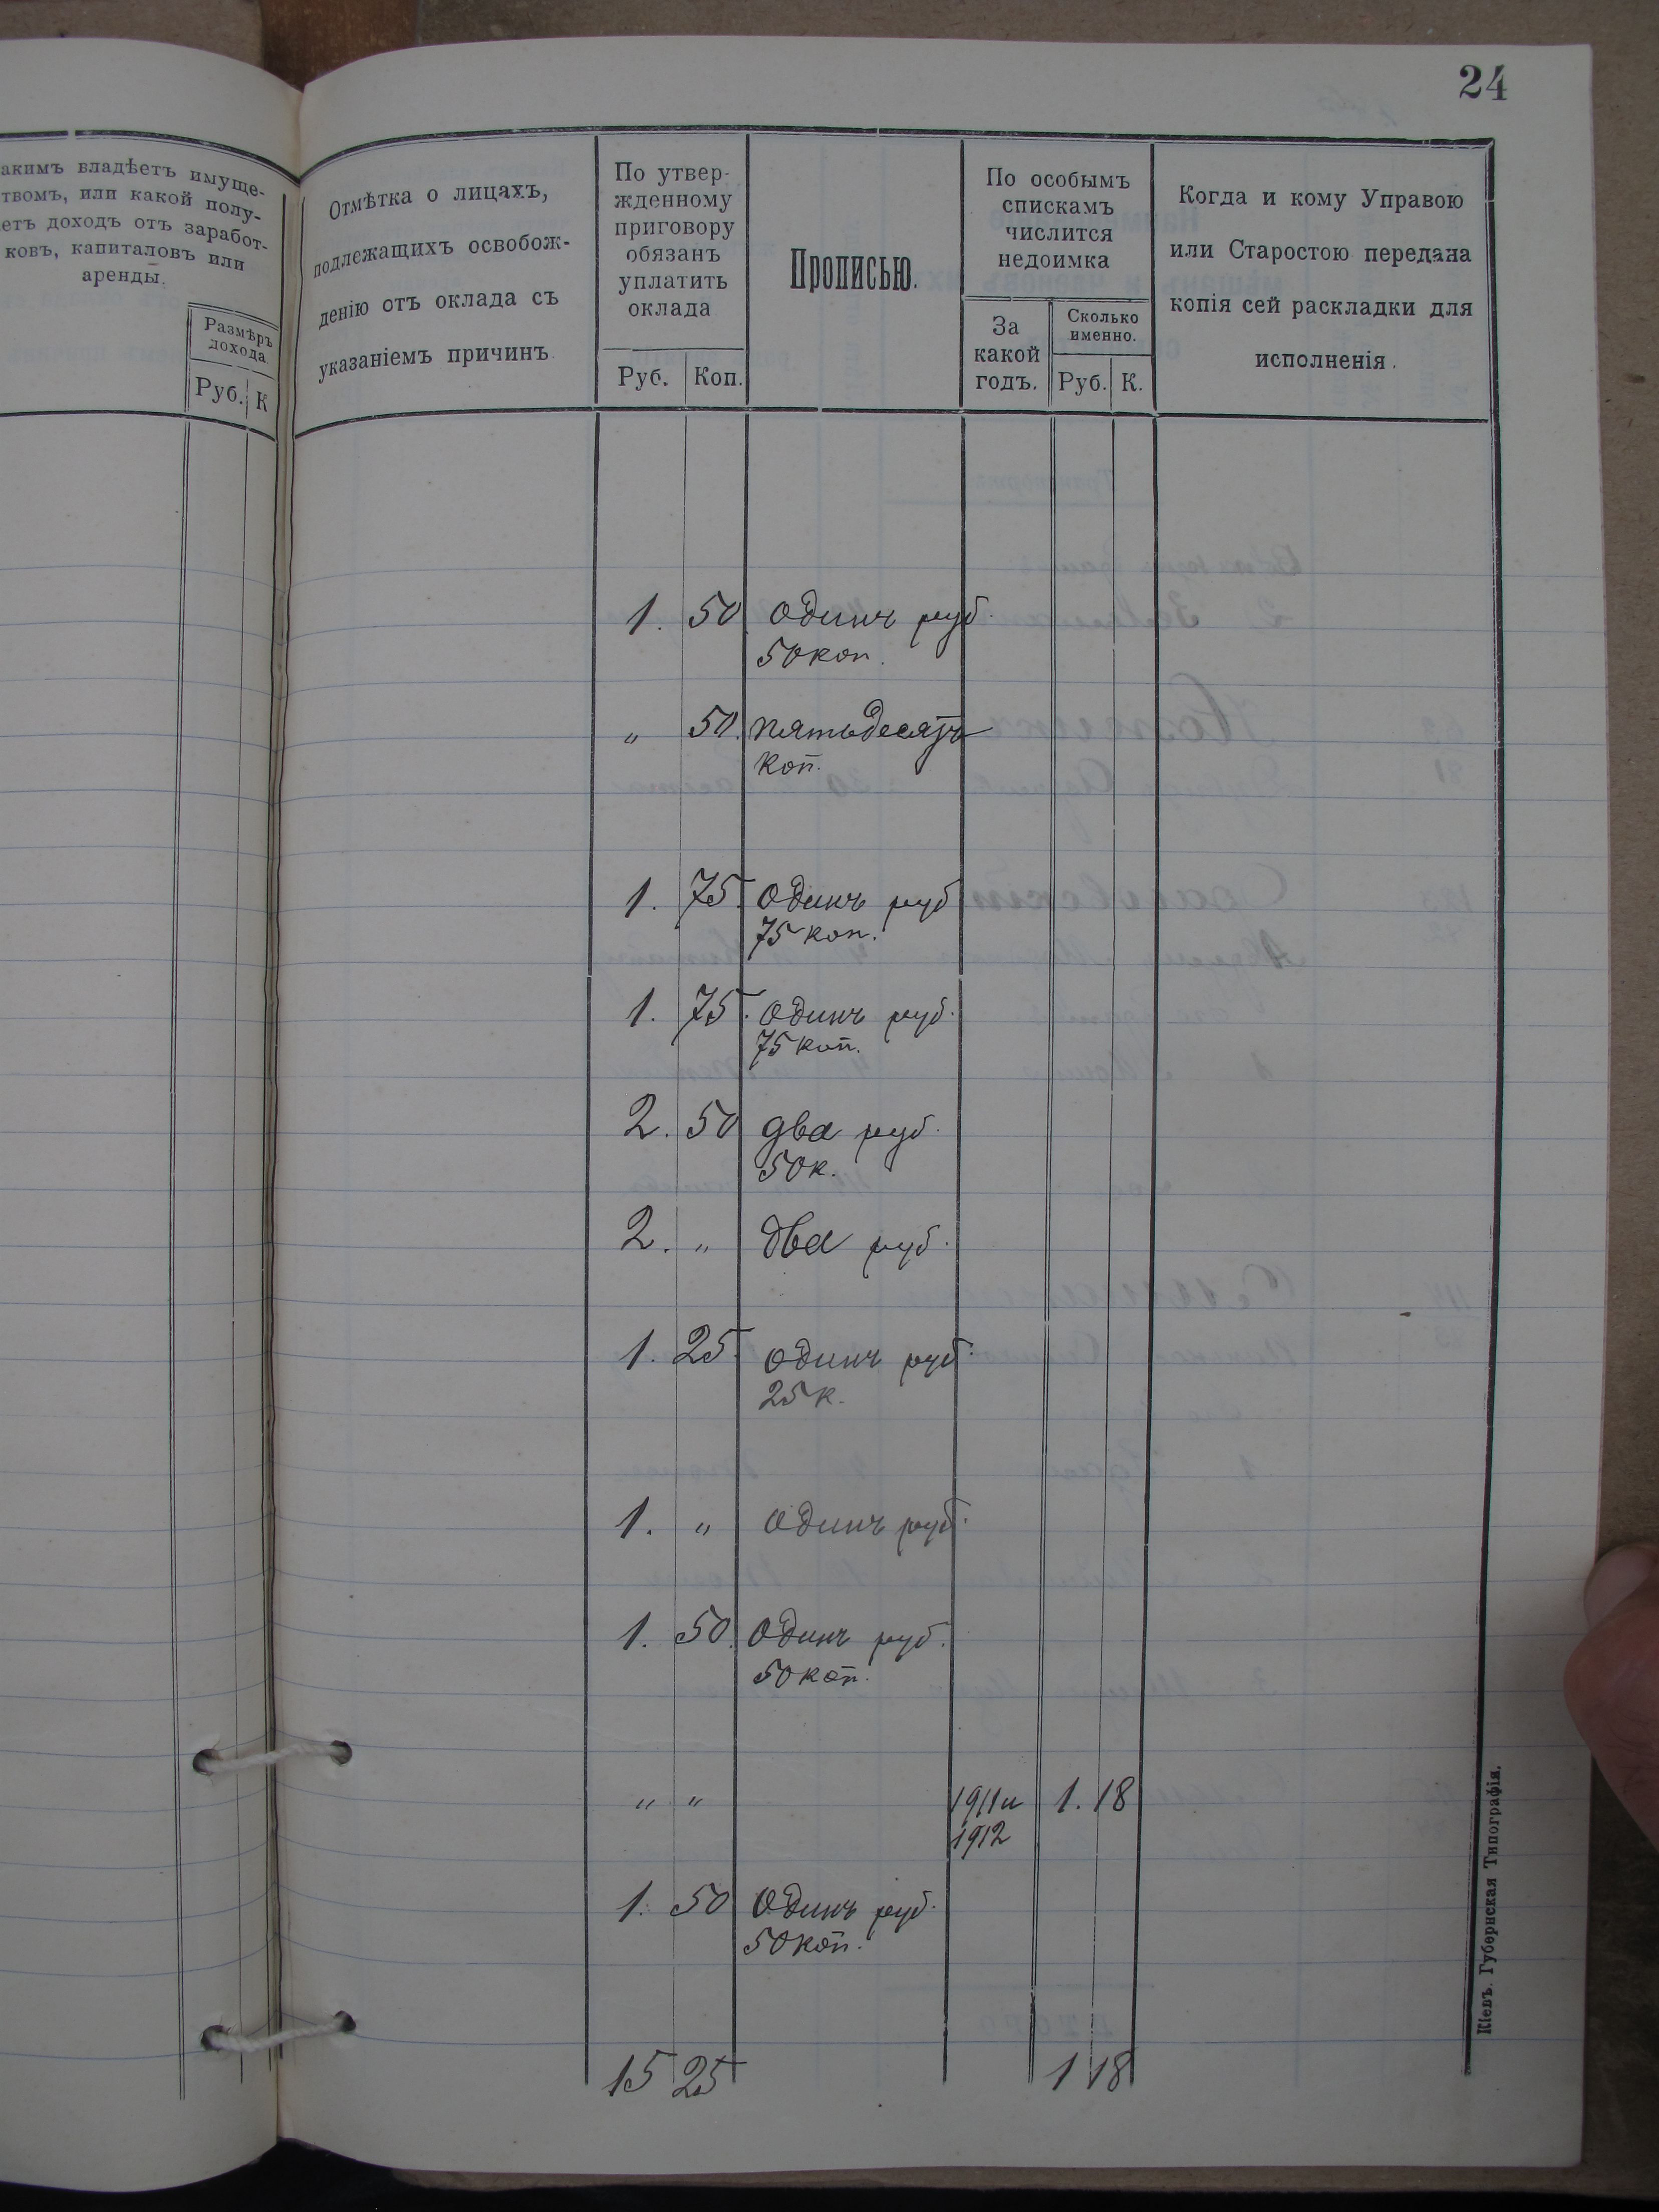 24
акимъ владѣетъ имуще-
твомъ, или какой полу-
етъ доходъ отъ заработ-
ковъ, капиталовъ или
аренды.
Размѣръ
дохода
Руб. К
Отмѣтка о лицахъ,
подлежащихъ освобож-
денію отъ оклада съ
указаніемъ причинъ
По утвер-
жденному
приговору
обязанъ
уплатить
оклада
Руб. Коп.
Прописью.
По особымъ
спискамъ
числится
недоимка
За
какой
годъ.
Сколько
именно.
Руб. К.
Когда и кому Управою
или Старостою передана
копія сей раскладки для
исполненія.
1. 50 одинъ руб.
50 коп.
" 50. пятьдесятъ
коп.
1. 75. одинъ руб
75 коп.
1. 75. одинъ руб.
75 коп.
2. 50 два руб.
50 к.
2. " два руб.
1. 25. одинъ руб.
25 к.
1. " одинъ руб.
1. 50. одинъ руб.
50 коп.
" " 1911 и 1. 18
1912
1. 50 одинъ руб.
50 коп.
15 25 1 18
Кіевъ. Губернская Типографія.